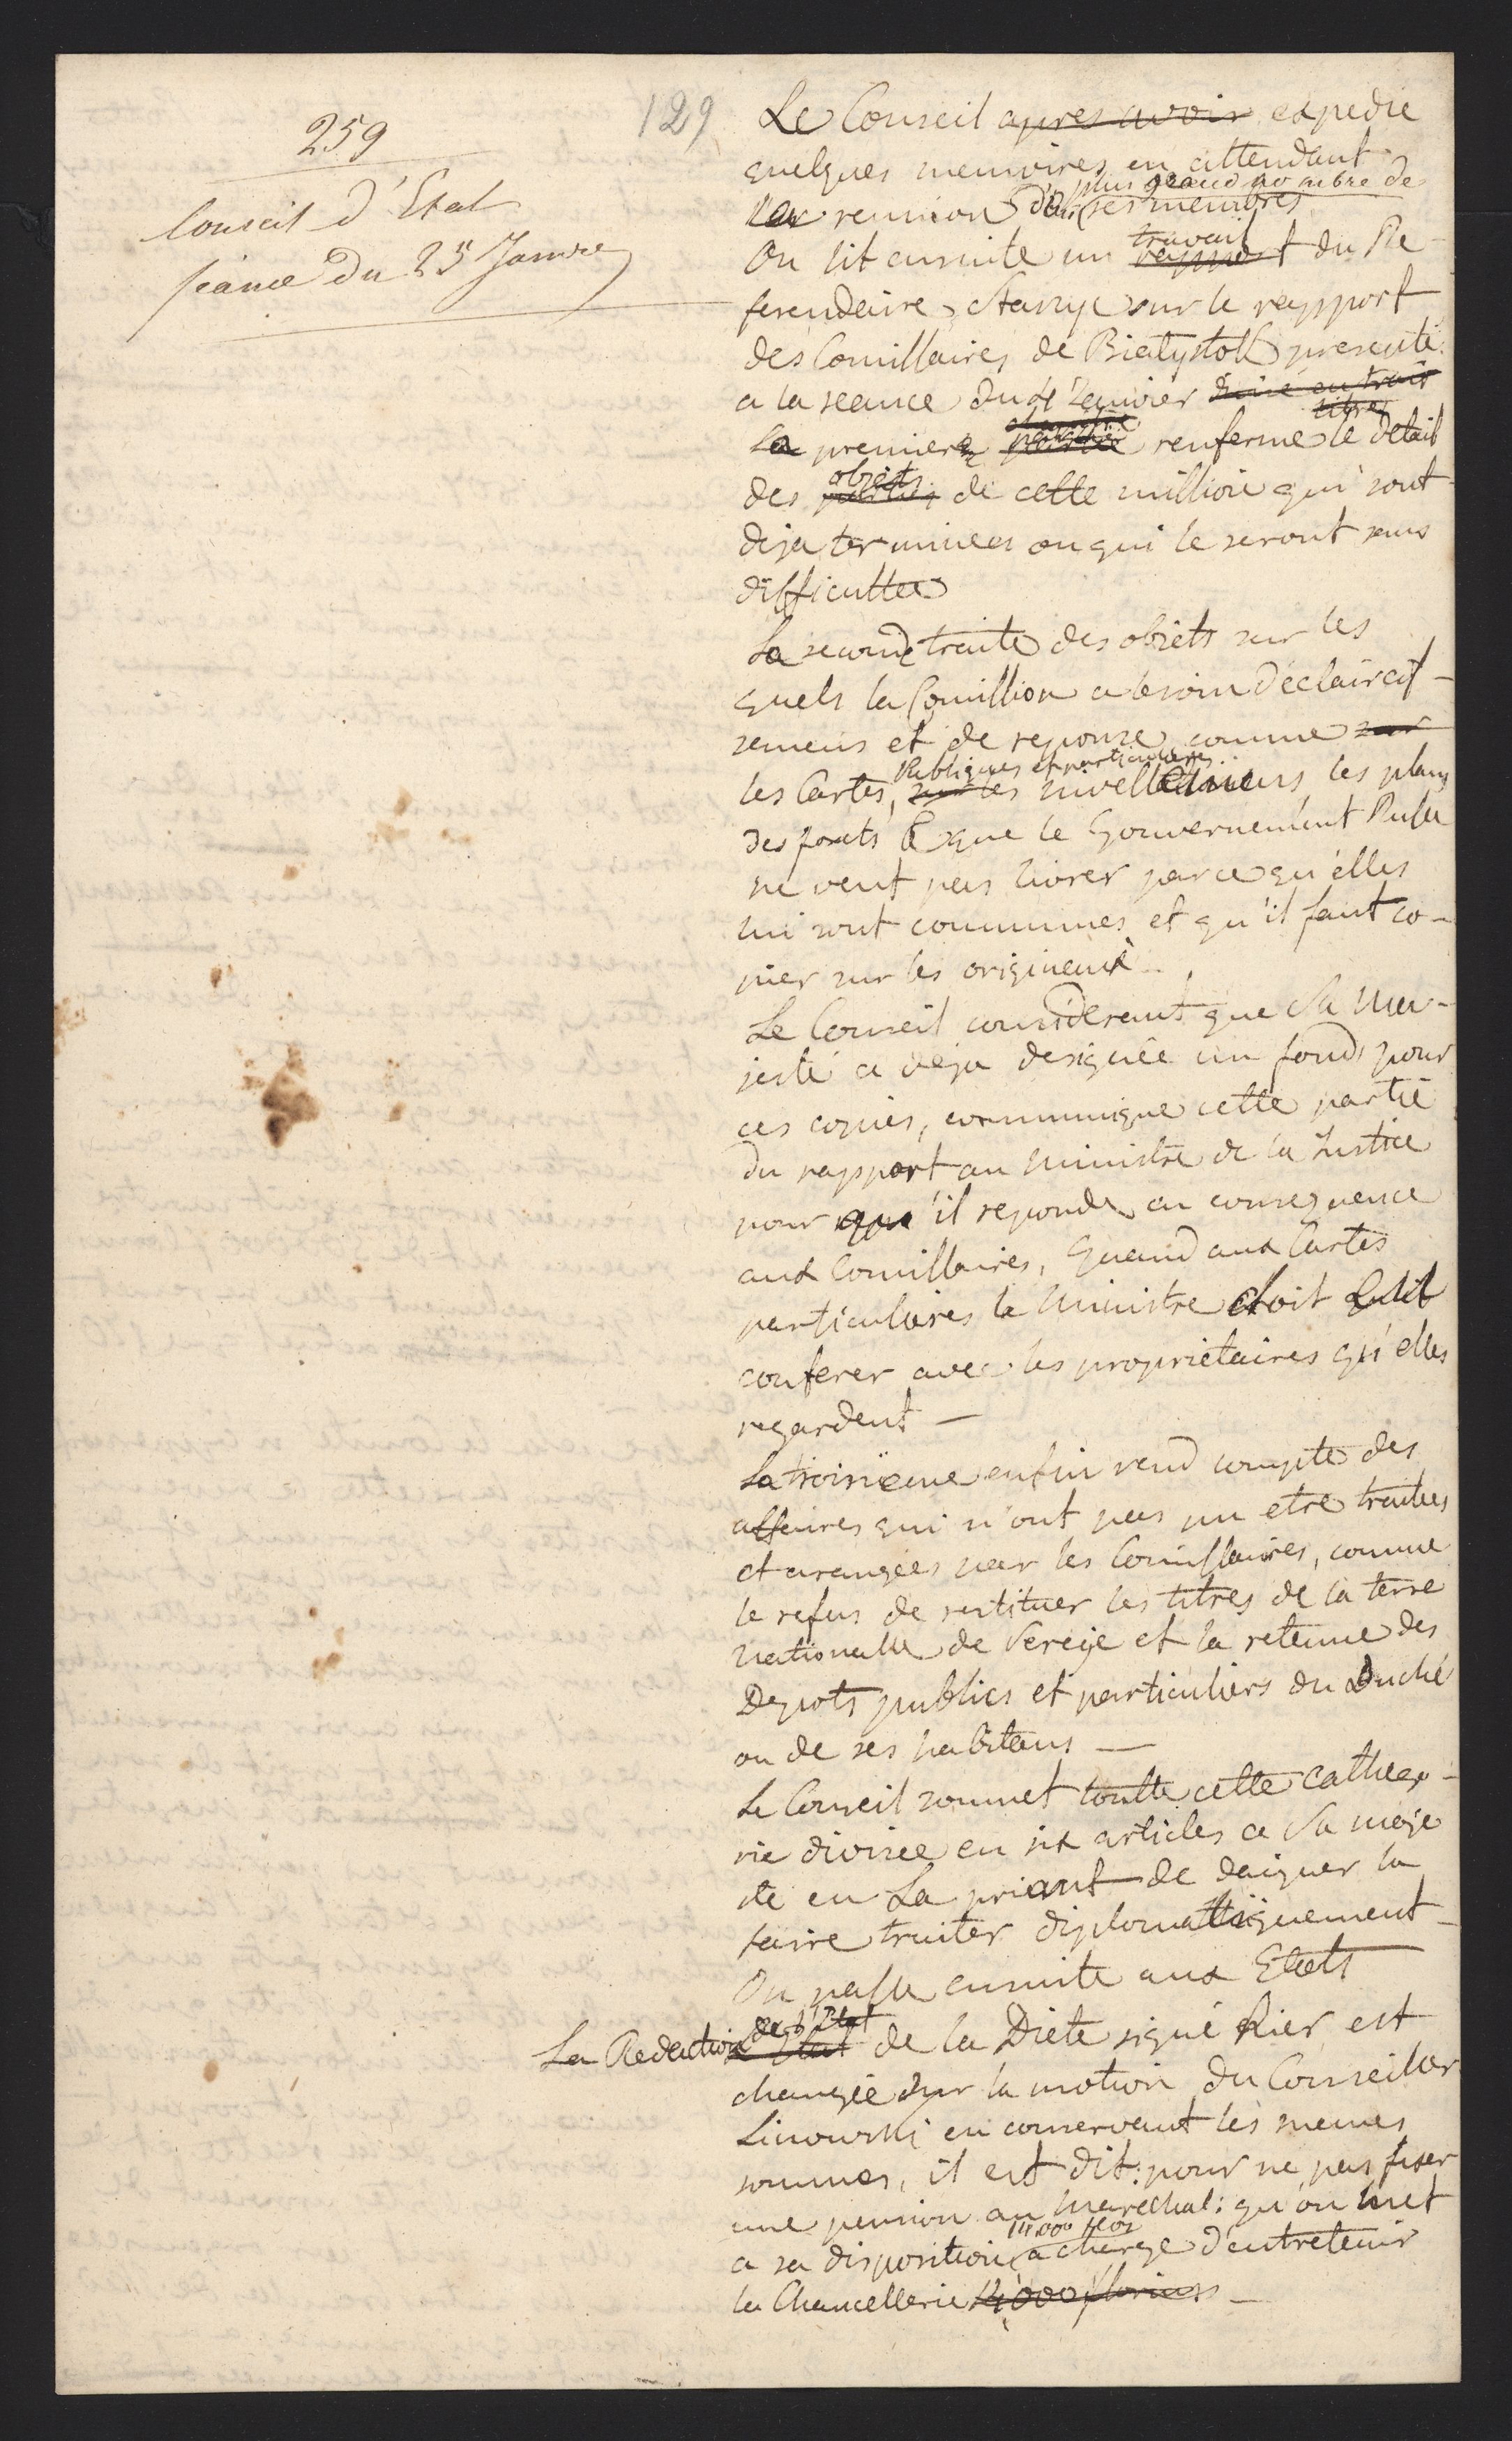 259
129
Conseil d'Etat
séance du 25 Janvier
Le Conseil apres avoir expedie
quelques memoires en attendant
plus grand nombre de
la reunion d'un ses membres
travail
On lit ensuite un rapport du Re-
ferendaire Staszyc sur le rapport
des Comissaires de Bialystok presenté
a la seance du 4 Janvier divisé en trois
titres
La premiere partie renferme le detail
objets
des parties de cette mission qui sont
deja terminees ou qui le seront sans
difficultee
La seconde traite des objets sur les
quels la Comission a besoin d'eclaircis-
semens et de reponse comme sur
Publiques et particulieres
les Cartes, sur les nivellemens les plans
des forets que le Gouvernement Russe
ne veut pas livrer parce qu'elles
lui sont communes et qu'il faut co-
pier sur les origineaux
Le Conseil considerant que Sa Ma-
jesté a deja designée un fonds pour
ces copies, communique cette partie
du rapport au Ministre de la Justice
pour qu'il reponde en consequence
aux Comissaires, Quand aux Cartes
particulieres le Ministre doit
conferer avec les proprietaires qu'elles
regardent —
La troisieme enfin rend compte des
affaires qui n'ont pas pu etre traitees
et arangées par les Comissaires, comme
le refus de restituer les titres de la terre
nationalle de Sereje et la retenue des
Depots publics et particuliers du Duché
ou de ses habitans —
Le Conseil soumet toutte cette cathego-
rie divisée en six articles a Sa Maje
sté en La priant de daigner la
faire traiter diplomattiquement —
On passe ensuite aux Etats
de l'Etat
La Redaction l'Etat de la Diete signé Rier est
changée sur la motion du Conseiller
Linowski en conservant les memes
sommes, il est dit: pour ne pas fixer
une pension au Marechal: qu'on met
14,000 flor
a sa disposition a charge d'entretenir
la Chancellerie 14,000 florins —